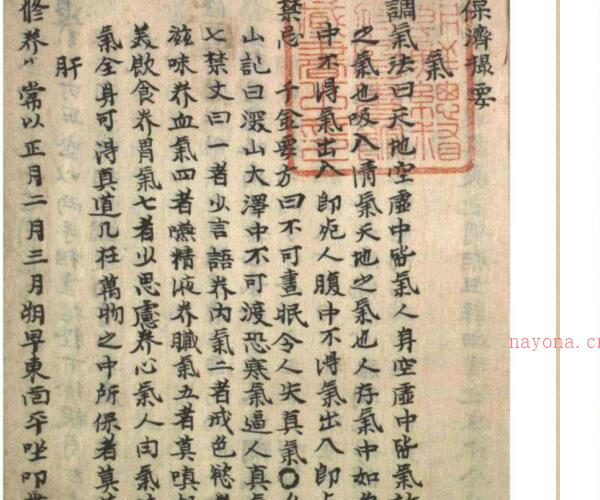 保濟撮要
氣
調氣法曰天地空虛中皆氣人身空虛中皆氣
之氣也吸入清氣天地之氣也人存氣中如
中不得氣出入即死人腹中不得氣出入即
禁忌 千金要方曰不可晝眠令人失真氣〇
山記曰深山大澤中不可渡恐寒氣逼人真氣
七禁文曰一者少言語养內氣二者戒色慾
滋味养血氣四者嚥精液养臟氣五者莫嗔
美飲食养胃氣七者少思慮养心氣人由氣
氣全身可得真道凡在萬物之中所保者莫
肝
修养〃常以正月二月三月朔早東面平坐叩
nayona.c